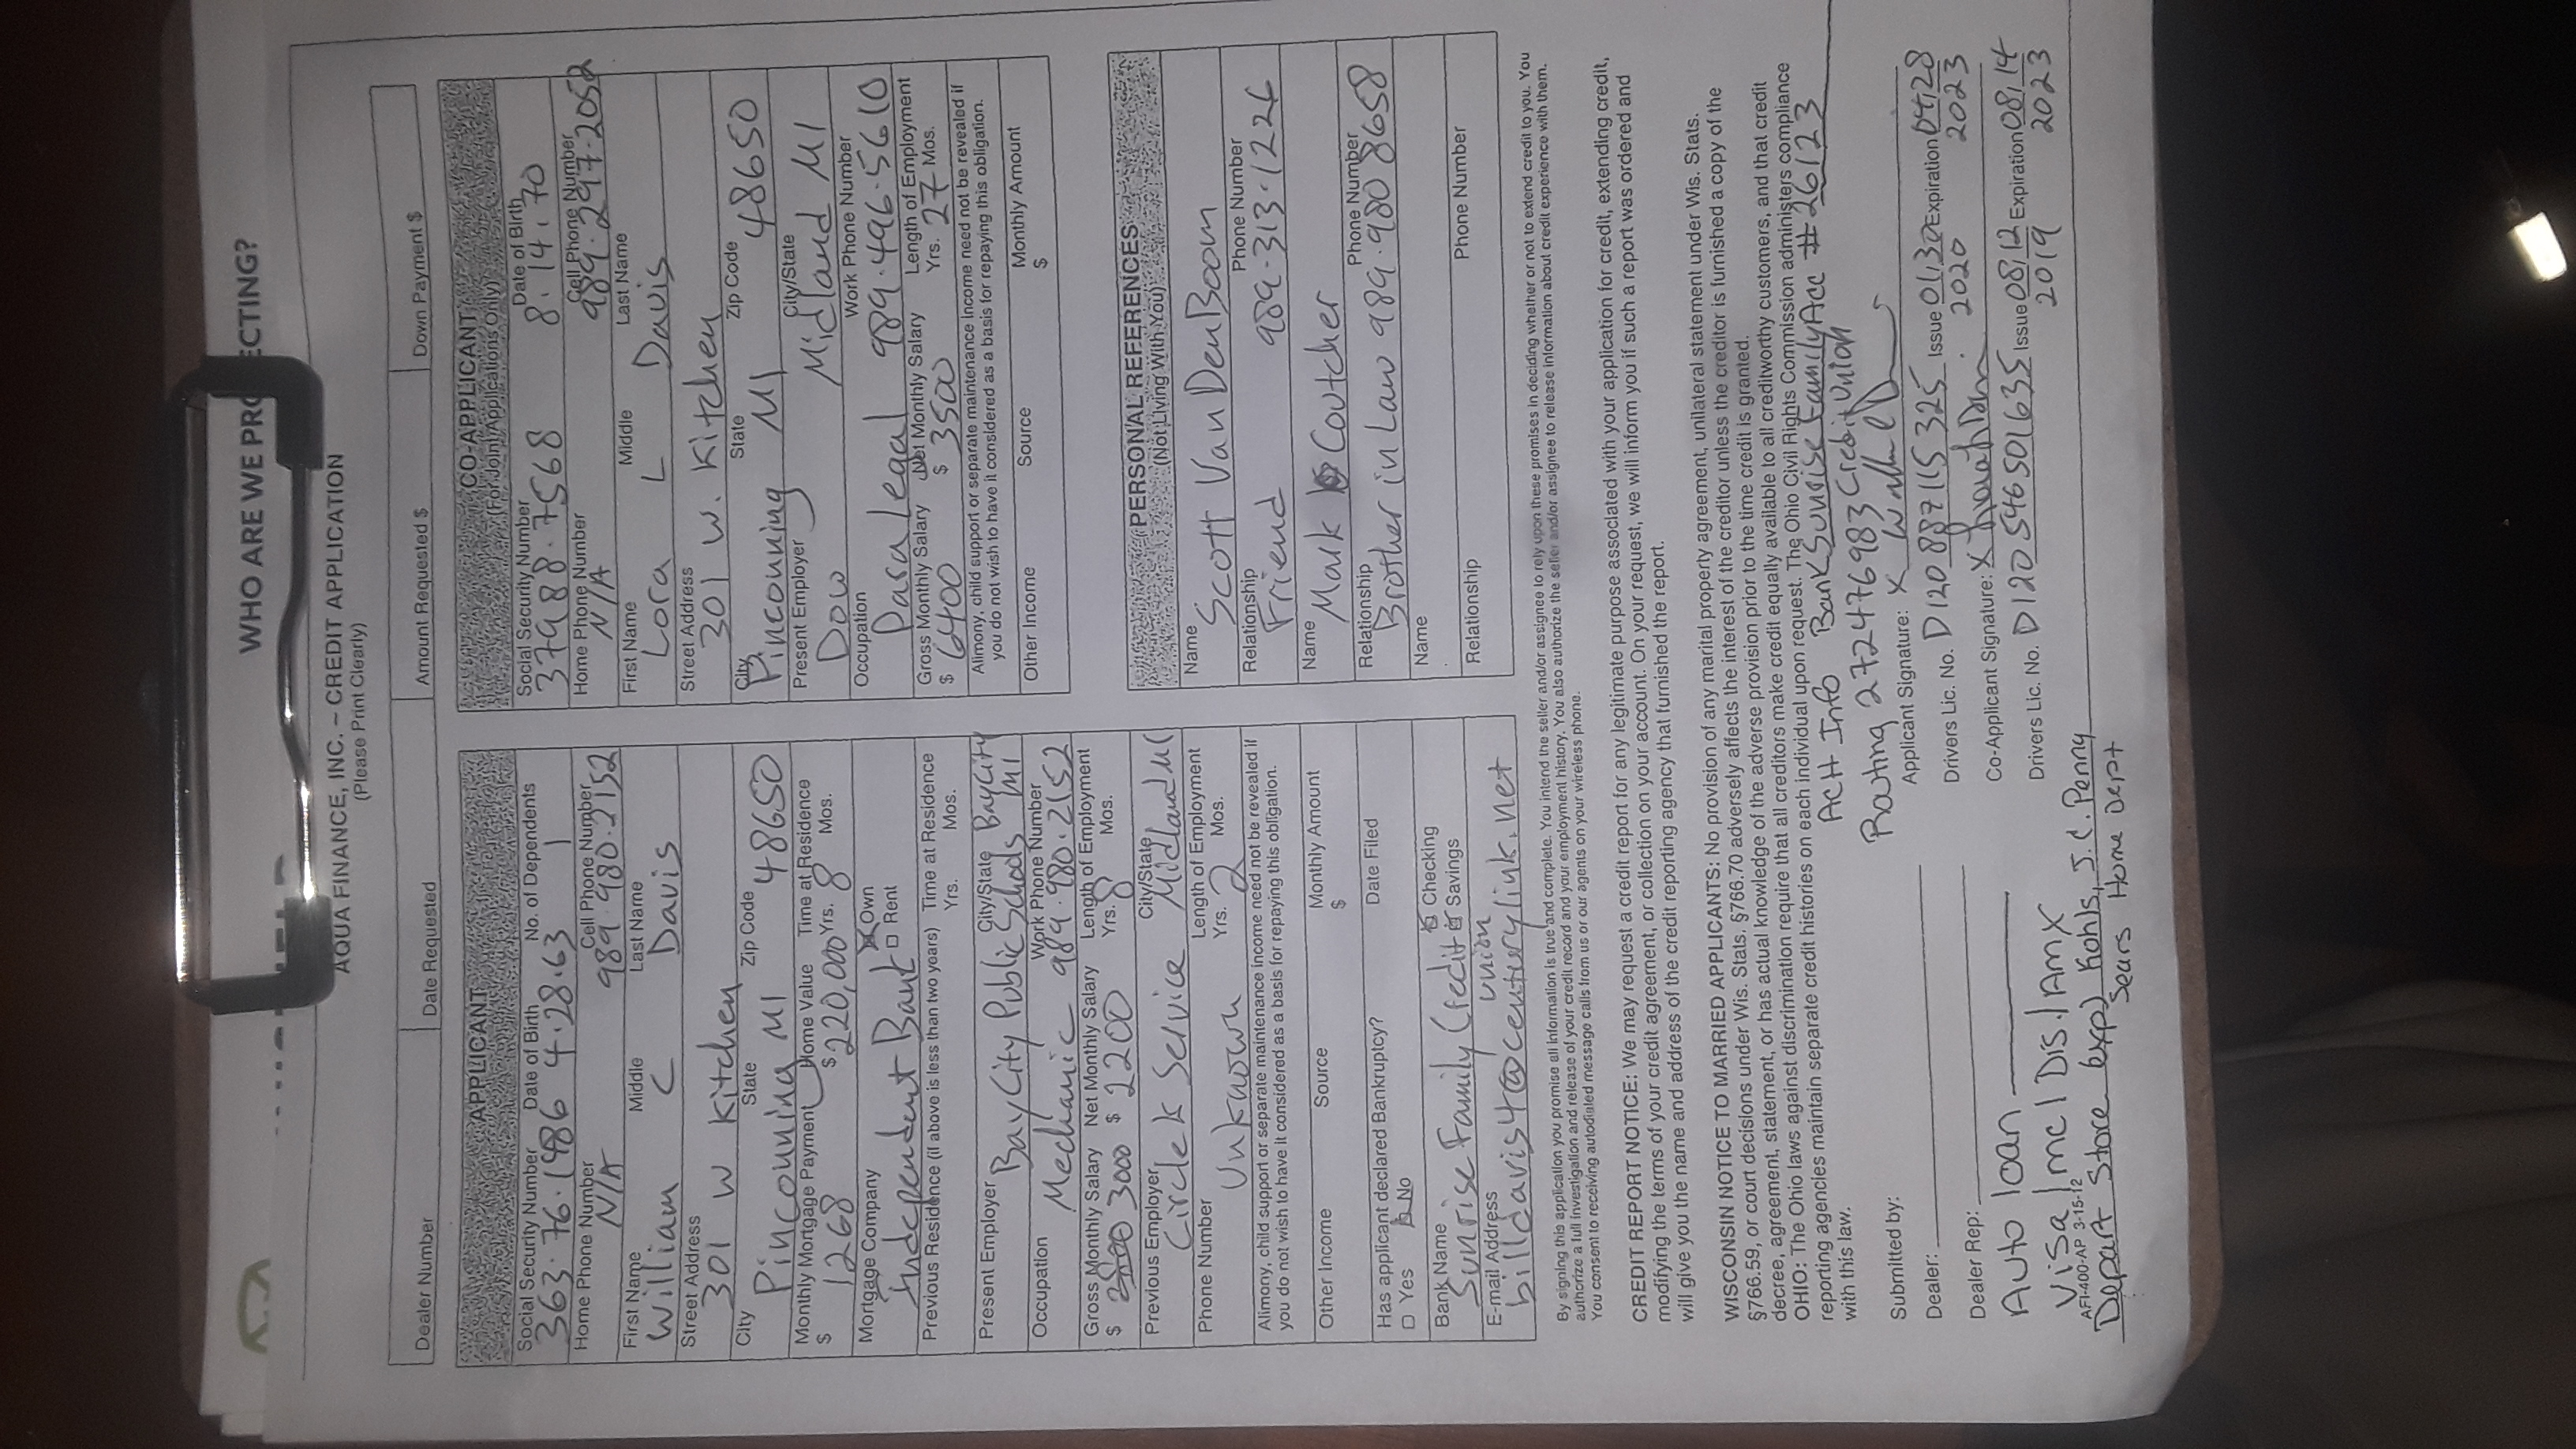 WHO ARE WE PROTECTING?
AQUA FINANCE, INC. – CREDIT APPLICATION
(Please Print Clearly)
Dealer Number
Date Requested
Amount Requested $
Down Payment $
APPLICANT
Social Security Number Date of Birth No. of Dependents
363·76·1486 4·28·63 1
Home Phone Number Cell Phone Number
N/A 989·980·2152
First Name Middle Last Name
William C Davis
Street Address
301 W Kitchen
City State Zip Code
Pinconning MI 48650
Monthly Mortgage Payment Home Value Time at Residence
$ 1268 $ 220,000 Yrs. 8 Mos.
Mortgage Company Own
Independent Bank Rent
Previous Residence (if above is less than two years) Time at Residence
Yrs. Mos.
Present Employer City/State
Bay City Public Schools Bay City MI
Occupation Work Phone Number
Mechanic 989·980·2152
Gross Monthly Salary Net Monthly Salary Length of Employment
$ 3000 $ 2200 Yrs. 8 Mos.
Previous Employer City/State
Circle K Service Midland MI
Phone Number Length of Employment
Unknown Yrs. 2 Mos.
Alimony, child support or separate maintenance income need not be revealed if
you do not wish to have it considered as a basis for repaying this obligation.
Other Income Source Monthly Amount
$
Has applicant declared Bankruptcy? Date Filed
Yes No
Bank Name Checking
Sunrise Family Credit Union Savings
E-mail Address
billdavis4@centurylink.net
CO-APPLICANT
(For Joint Applications Only)
Social Security Number Date of Birth
379·88·7568 8·14·70
Home Phone Number Cell Phone Number
N/A 989·297·2052
First Name Middle Last Name
Lora L Davis
Street Address
301 W. Kitchen
City State Zip Code
Pinconning MI 48650
Present Employer City/State
Dow Midland MI
Occupation Work Phone Number
Paralegal 989·496·5610
Gross Monthly Salary Net Monthly Salary Length of Employment
$ 6400 $ 3500 Yrs. 27 Mos.
Alimony, child support or separate maintenance income need not be revealed if
you do not wish to have it considered as a basis for repaying this obligation.
Other Income Source Monthly Amount
$
PERSONAL REFERENCES
(Not Living With You)
Name
Scott VanDenBoom
Relationship Phone Number
Friend 989-313-1226
Name
Mark Coutcher
Relationship Phone Number
Brother in Law 989·980 8658
Name
Relationship Phone Number
By signing this application you promise all information is true and complete. You intend the seller and/or assignee to rely upon these promises in deciding whether or not to extend credit to you. You
authorize a full investigation and release of your credit record and your employment history. You also authorize the seller and/or assignee to release information about credit experience with them.
You consent to receiving autodialed message calls from us or our agents on your wireless phone.
CREDIT REPORT NOTICE: We may request a credit report for any legitimate purpose associated with your application for credit, extending credit,
modifying the terms of your credit agreement, or collection on your account. On your request, we will inform you if such a report was ordered and
will give you the name and address of the credit reporting agency that furnished the report.
WISCONSIN NOTICE TO MARRIED APPLICANTS: No provision of any marital property agreement, unilateral statement under Wis. Stats.
§766.59, or court decisions under Wis. Stats. §766.70 adversely affects the interest of the creditor unless the creditor is furnished a copy of the
decree, agreement, statement, or has actual knowledge of the adverse provision prior to the time credit is granted.
OHIO: The Ohio laws against discrimination require that all creditors make credit equally available to all creditworthy customers, and that credit
reporting agencies maintain separate credit histories on each individual upon request. The Ohio Civil Rights Commission administers compliance
with this law.
ACH Info Bank Sunrise Family Acc # 26123
Routing 272476983 Credit Union
Submitted by:
Applicant Signature: X
Dealer:
Drivers Lic. No. D 120 887 115 325 Issue 01,30 2020 Expiration 04,28 2023
Dealer Rep:
Co-Applicant Signature: X
Drivers Lic. No. D 120 546 501 635 Issue 08,12 2019 Expiration 08,14 2023
Auto loan
Visa / mc / DIS. / AmX
AFI-400-AP 3-15-12
Depart Store (exp) Kohls, J.C. Penny
Sears Home Dept